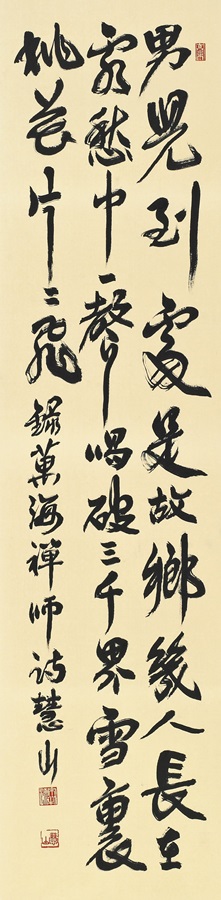 男兒到處是故鄉幾人長在
客愁中一聲喝破三千界雪裏
桃花片〻飛 錄萬海禪師詩 慧山